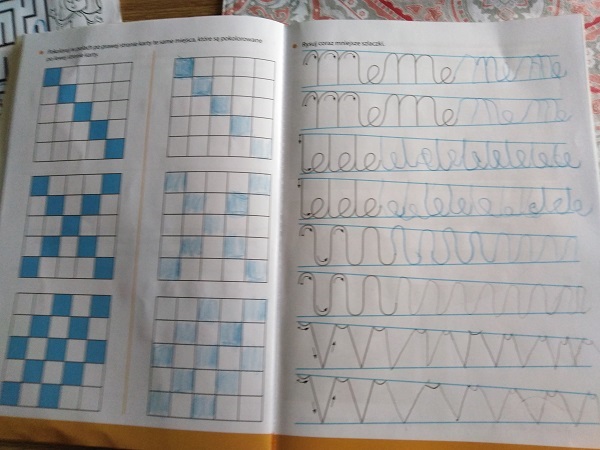 Pokoloruj w polach po prawej stronie karty te same miejsca, które są pokolorowane
po lewej stronie karty.
Rysuj coraz mniejsze szlaczki.